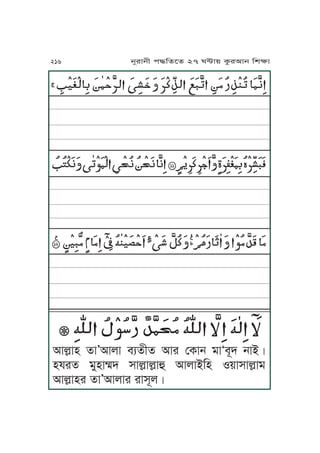 ২১৬ নূরানী পদ্ধতিতে ২৭ ঘন্টায় কুরআন শিক্ষা
اِنَّمَا تُنْذِرُ مَنِ اتَّبَعَ الذِّكْرَ وَخَشِىَ الرَّحْمٰنَ بِالْغَيْبِ ۚ
فَبَشِّرْهُ بِمَغْفِرَةٍ وَّاَجْرٍ كَرِيْمٍ ⑪ اِنَّا نَحْنُ نُحْىِ الْمَوْتٰى وَنَكْتُبُ
مَا قَدَّمُوْا وَاٰثَارَهُمْ ؕ وَكُلَّ شَىْءٍ اَحْصَيْنٰهُ فِىْٓ اِمَامٍ مُّبِيْنٍ ⑫
لَآ اِلٰهَ اِلَّا اللّٰهُ مُحَمَّدٌ رَّسُوْلُ اللّٰهِ
আল্লাহ তা'আলা ব্যতীত আর কোন মা'বূদ নাই।
হযরত মুহাম্মদ সাল্লাল্লাহু আলাইহি ওয়াসাল্লাম
আল্লাহর তা'আলার রাসূল।